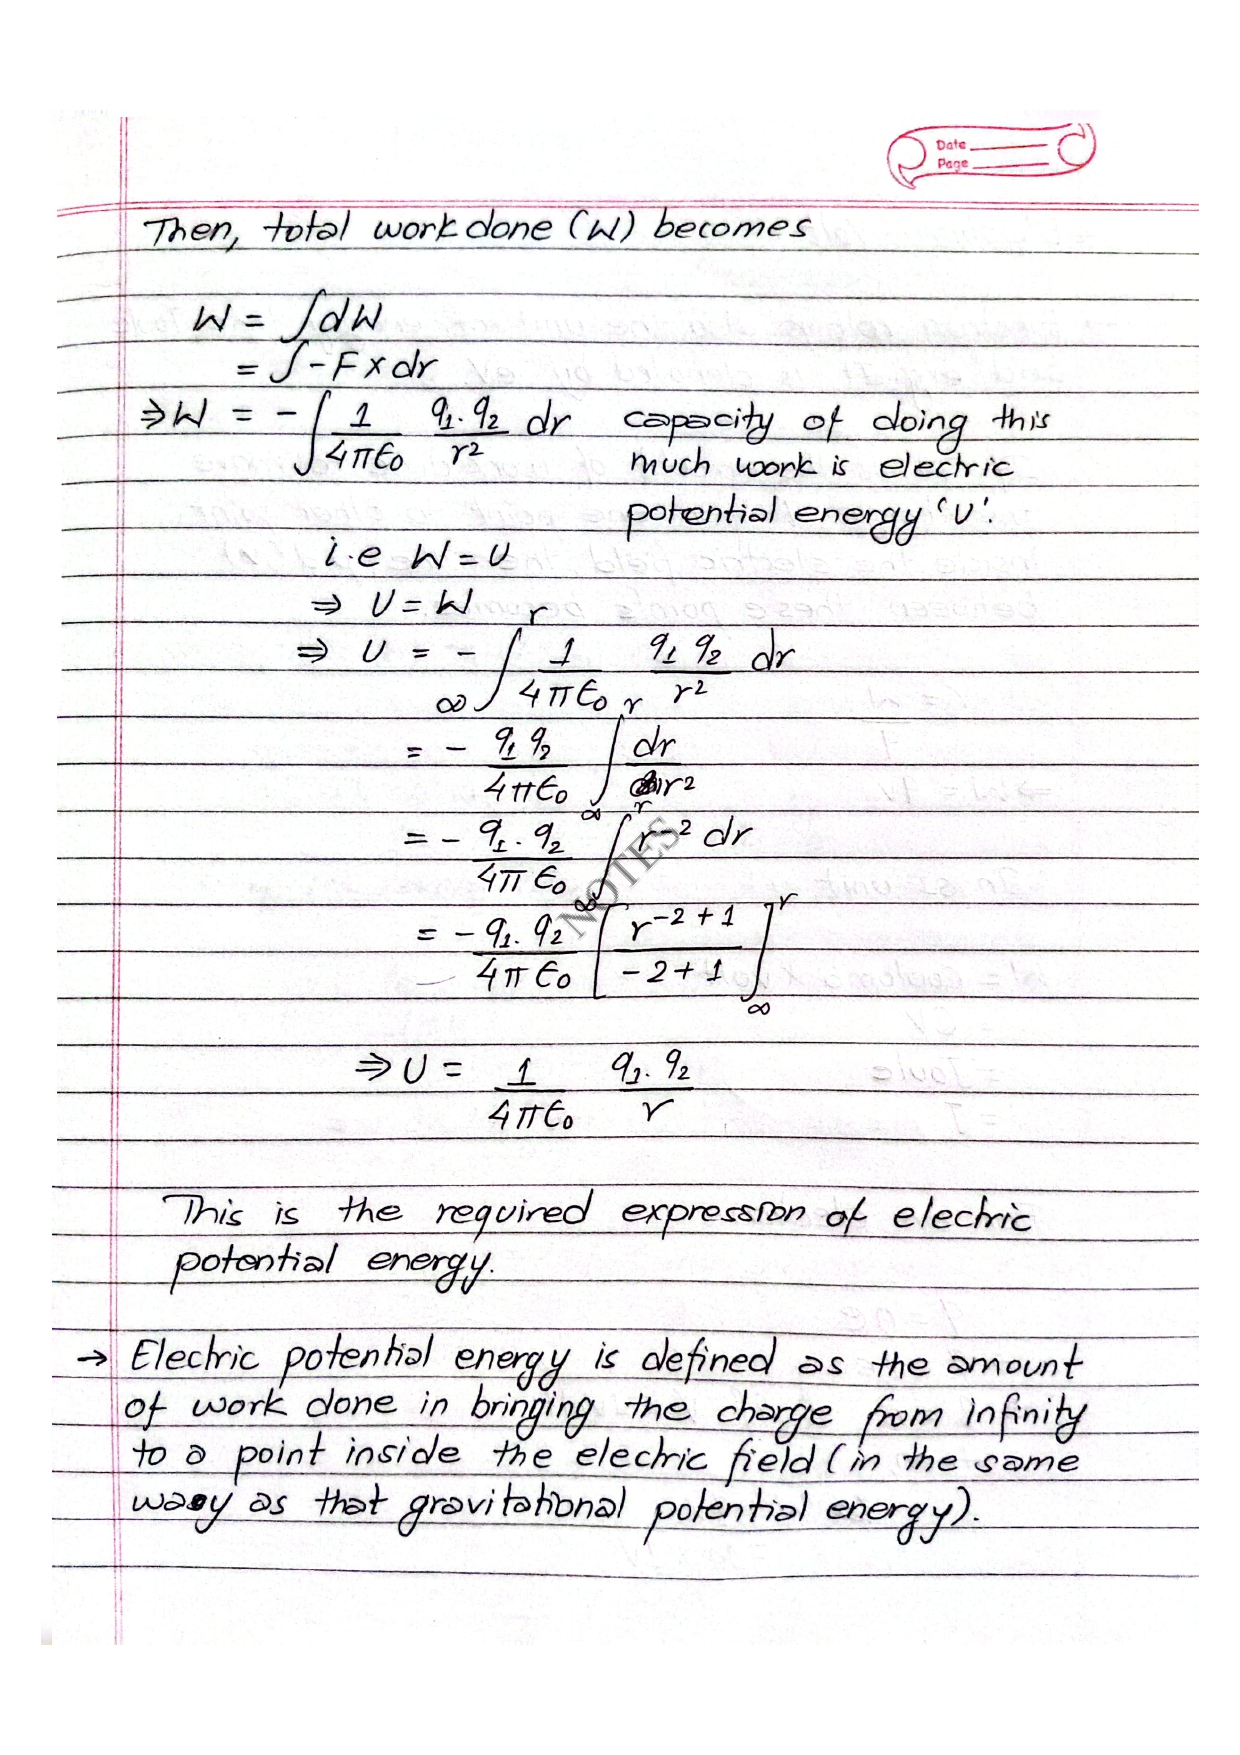 Date
Page
Then, total work done (W) becomes
W = ∫dW
= ∫-F x dr
⇒W = -∫ 1/4πϵ₀ q₁.q₂/r² dr capacity of doing this
much work is electric
potential energy 'U'.
i.e W = U
⇒ U = W
⇒ U = - ∞∫r 1/4πϵ₀ q₁ q₂/r² dr
= - q₁ q₂/4πϵ₀ ∞∫r dr/r²
= - q₁ . q₂/4πϵ₀ ∞∫r r⁻² dr
= - q₁. q₂/4πϵ₀ [r⁻²⁺¹/-2+1]r∞
⇒ U = 1/4πϵ₀ q₁. q₂/r
This is the required expression of electric
potential energy.
→ Electric potential energy is defined as the amount
of work done in bringing the charge from infinity
to a point inside the electric field (in the same
way as that gravitational potential energy).
NOTES